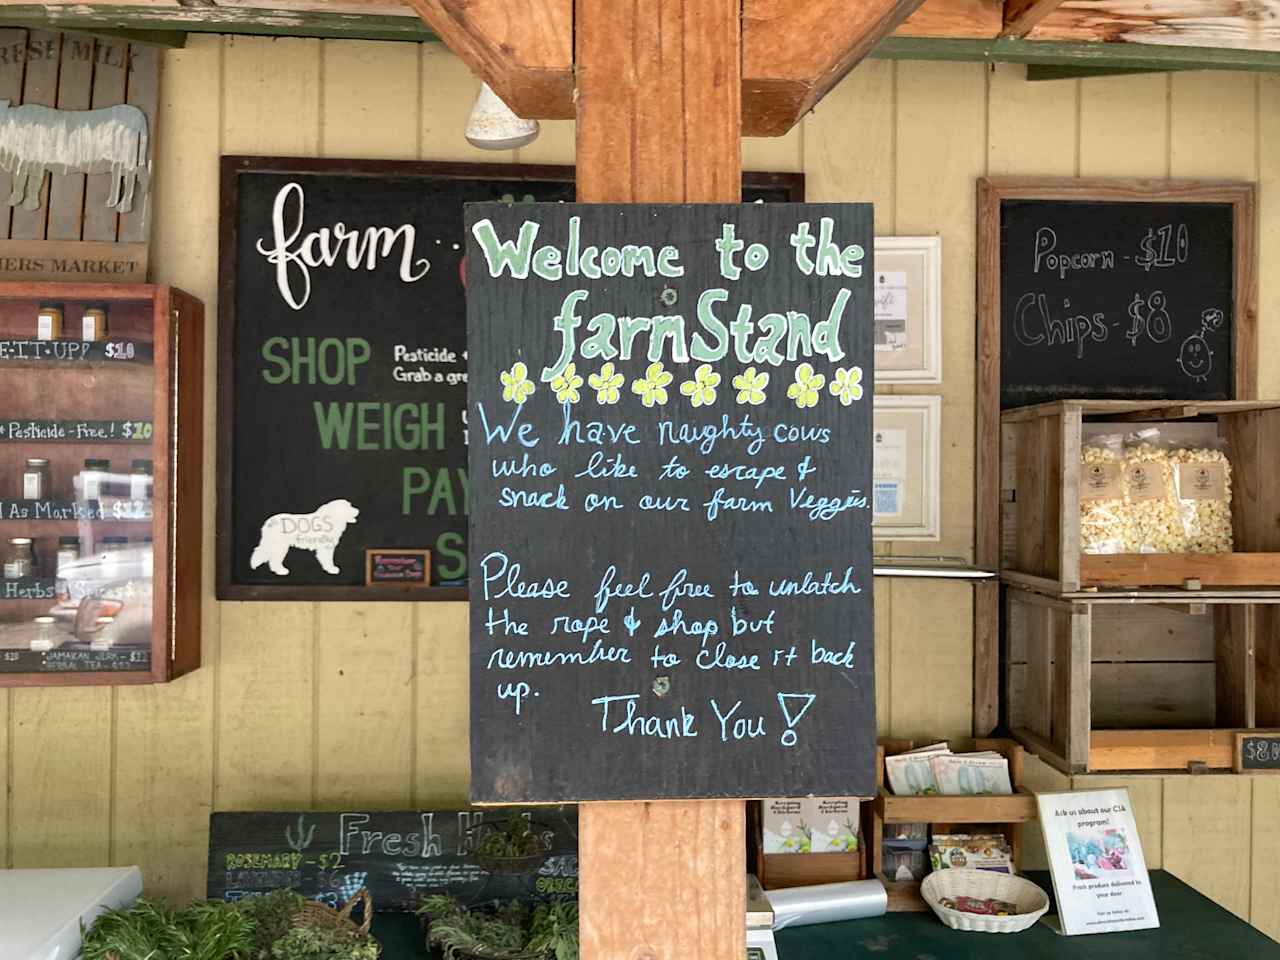 FRESH MILK
MERS MARKET
E-IT-UP! $10
Pesticide-Free! $10
As Marked $12
Herbs & Spices
$20
JAMAICAN JERK - $12
HERBAL TEA - $12
farm
SHOP
Pesticide
Grab a gre
WEIGH
PAY
S
DOGS
friendly
Welcome to the
farm Stand
We have naughty cows
who like to escape &
snack on our farm Veggies.
Please feel free to unlatch
the rope & shop but
remember to close it back
up.
Thank You!
Popcorn - $10
Chips - $8
$20
Fresh Herbs
ROSEMARY - $2
Keeping
Backyard
Chickens
Keeping
Backyard
Chickens
Ask us about our CSA
program!
Fresh produce delivered to
your door